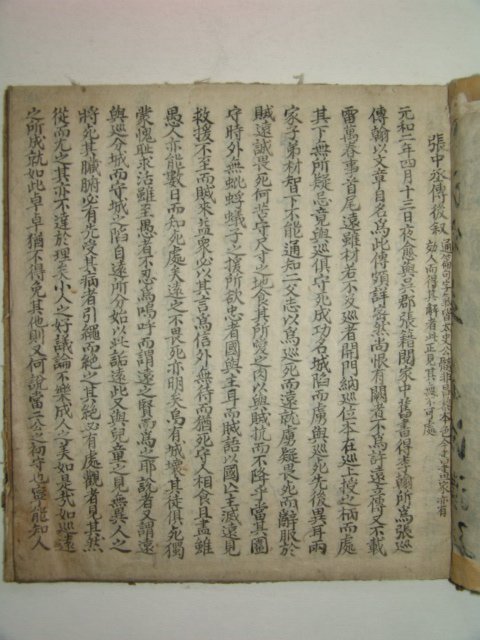 張中丞傳後叙 通篇句字氣皆太史公髓非昌黎本色今書畫家亦有
效人而得其解者此正見其無不可處
元和二年四月十三日夜愈與吳郡張籍閱家中舊書得李翰所爲張巡
傳翰以文章自名爲此傳頗詳密然尚恨有闕者不爲許遠立傳又不載
雷萬春事首尾遠雖材若不及巡者開門納巡位本在巡上授之柄而處
其下無所疑忌竟與巡俱守死成功名城陷而虜與巡死先後異耳兩
家子弟材智下不能通知二父志以爲巡死而遠就虜疑畏死而辭服於
賊遠誠畏死何苦守尺寸之地食其所愛之肉以與賊抗而不降乎當其圍
守時外無蚍蜉蟻子之援所欲忠者國與主耳而賊語以國亡主滅遠見
救援不至而賊來益衆必以其言爲信外無待而猶死守人相食且盡雖
愚人亦能數日而知死處矣遠之不畏死亦明矣烏有城壞其徒俱死獨
蒙愧耻求活雖至愚者不忍爲嗚呼而謂遠之賢而爲之耶說者又謂遠
與巡分城而守城之陷自遠所分始以此詬遠此又與兒童之見無異人之
將死其臟腑必有先受其病者引繩而絶之其絶必有處觀者見其然
從而尤之其亦不達於理矣小人之好議論不樂成人之美如是哉如巡遠
之所成就如此卓卓猶不得免其他則又何說當二公之初守也寧能知人